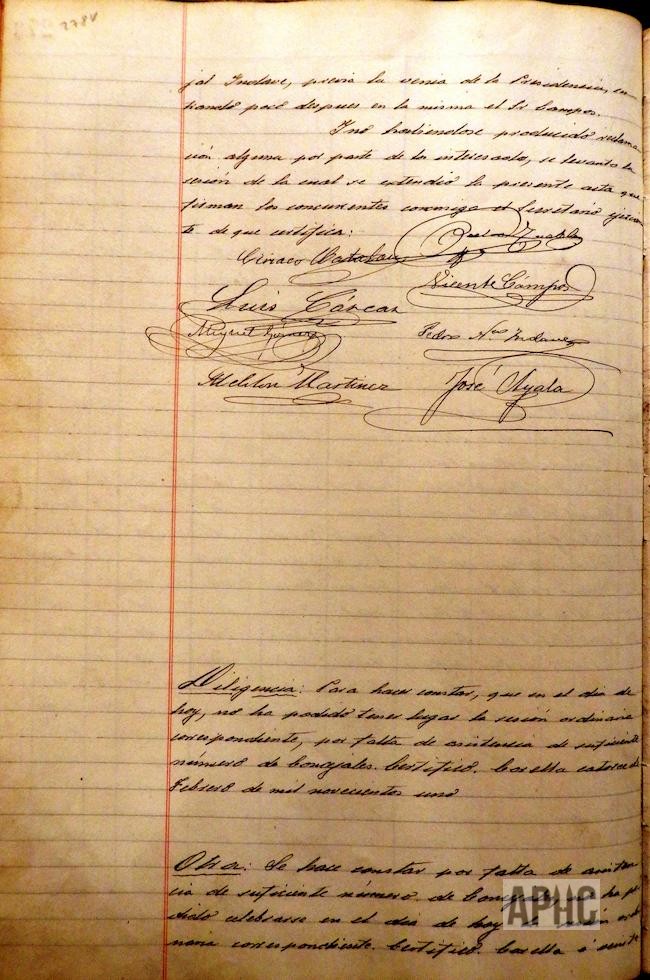 278V
jal Indave, previa la venia de la Presidencia, en-
trando poco despues en la misma el Sr Campos.
Y no habiendose producido reclama-
ción alguna por parte de los interesados, se levantó la
sesión de la cual se extendió la presente acta que
firman los concurrentes conmigo el Secretario
te de que certifico:
Ciriaco
Vicente Campos
Luis Cárcar
Miguel Gómara
Pedro Nco Indave
Meliton Martinez
José Ayala
Diligencia: Para hacer constar, que en el dia de
hoy, no ha podido tener lugar la sesión ordinaria
correspondiente, por falta de asistencia de suficiente
número de Concejales. Certifico. Corella catorce de
Febrero de mil novecientos uno
Otra: Se hace constar por falta de asisten-
cia de suficiente número de Concejales, no ha po-
dido celebrarse en el dia de hoy la sesión ordi-
naria correspondiente. Certifico. Corella á veinte
APHC